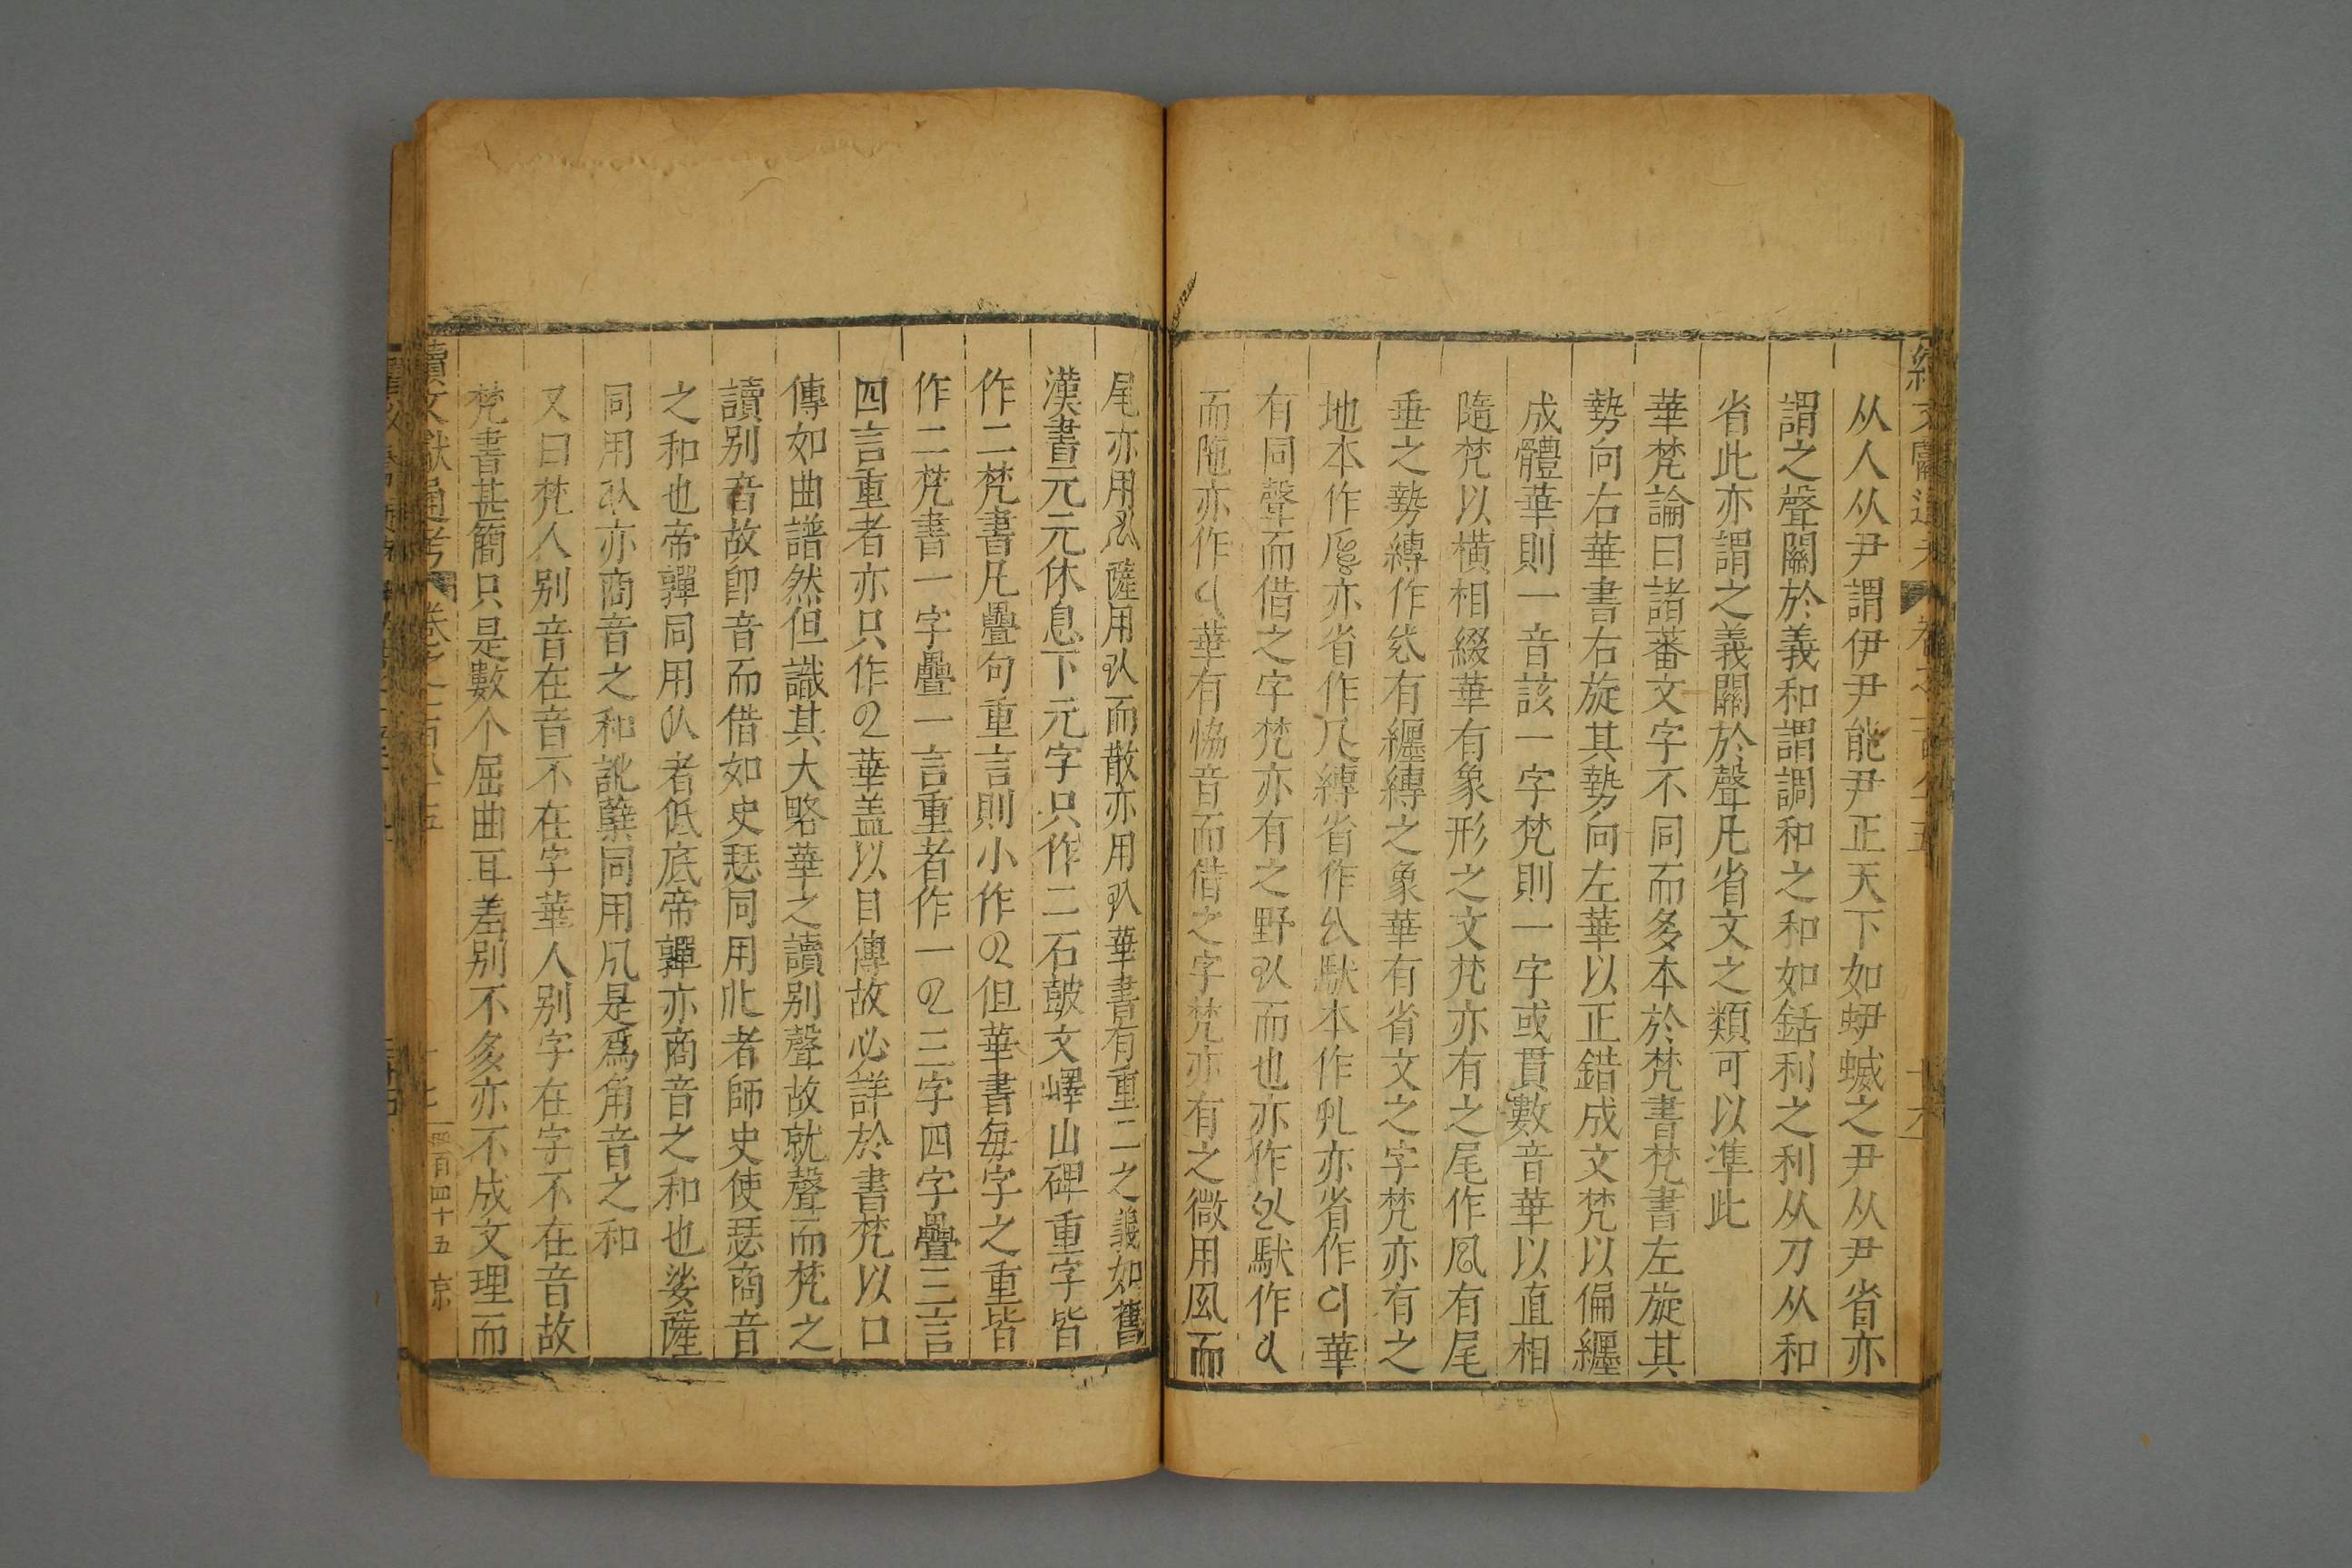 从人从尹謂伊尹能尹正天下如蛜蝛之尹从尹省亦
謂之聲關於義和謂調和之和如銛利之利从刀从和
省此亦謂之義關於聲凡省文之類可以準此
華梵論曰諸蕃文字不同而多本於梵書梵書左旋其
勢向右華書右旋其勢向左華以正錯成文梵以偏纒
成體華則一音該一字梵則一字或貫數音華以直相
隨梵以橫相綴華有象形之文梵亦有之尾作有尾
垂之勢縛作有纒縛之象華有省文之字梵亦有之
地本作亦省作縛省作馱本作亦省作華
有同聲而借之字梵亦有之野而也亦作馱作
而陁亦作華有恊音而借之字梵亦有之微用而
尾亦用薩用而散亦用華書有重二之義如舊
漢書元元休息下元字只作二石皷文嶧山碑重字皆
作二梵書凡疊句重言則小作但華書每字之重皆
作二梵書一字疊一言重者作一三字四字疊三言
四言重者亦只作華盖以目傳故必詳於書梵以口
傳如曲譜然但識其大略華之讀别聲故就聲而梵之
讀别音故即音而借如史瑟同用者師史使瑟商音
之和也帝嚲同用者低底帝嚲亦商音之和也娑薩
同用亦商音之和訛蘖同用是爲角音之和
又曰梵人别音在音不在字華人别字在字不在音故
梵書甚簡只是數个屈曲耳差别不多亦不成文理而